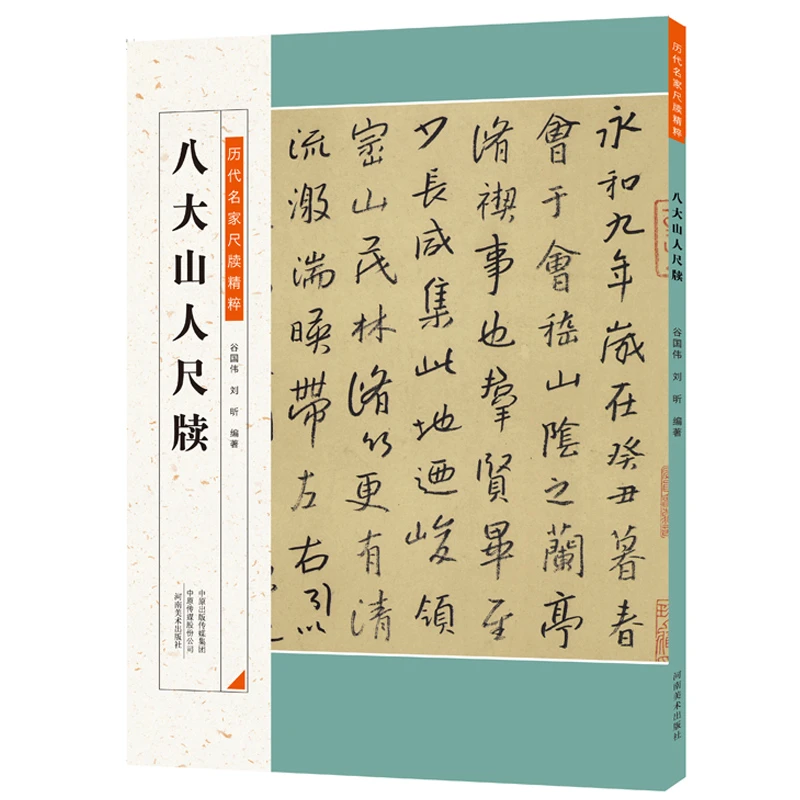 八大山人尺牍
历代名家尺牍精粹
谷国伟 刘昕 编著
中原出版传媒集团
中原传媒股份公司
河南美术出版社
永和九年歲在癸丑暮春
會于會嵇山陰之蘭亭
脩禊事也羣賢畢至
少長咸集此地迺峻領
崇山茂林脩竹更有清
流激湍暎帶左右引以
历代名家尺牍精粹
八大山人尺牍
谷国伟 刘昕 编著
河南美术出版社